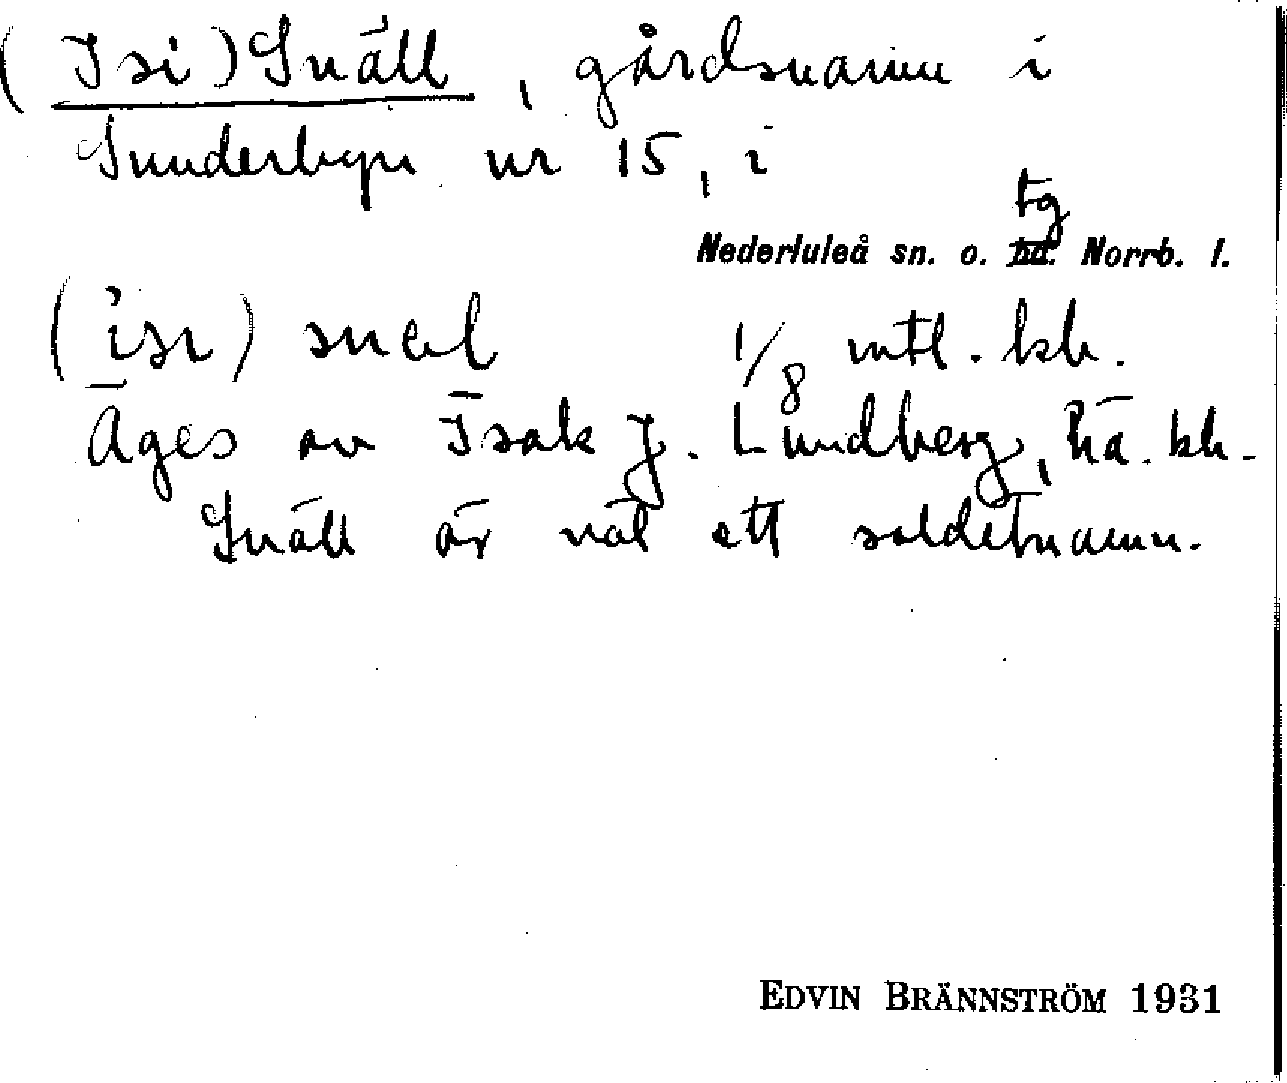 (Isi) Snäll, gårdsnamn i
Sunderbyn nr 15, i
tg
Nederluleå sn. o. hd. Norrb. l.
(ɩ̀sɩ) snɛl 1/8 mtl. kh.
Äges av Isak J. Lundberg, hä. kh.
Snäll är väl ett soldatnamn.
EDVIN BRÄNNSTRÖM 1931